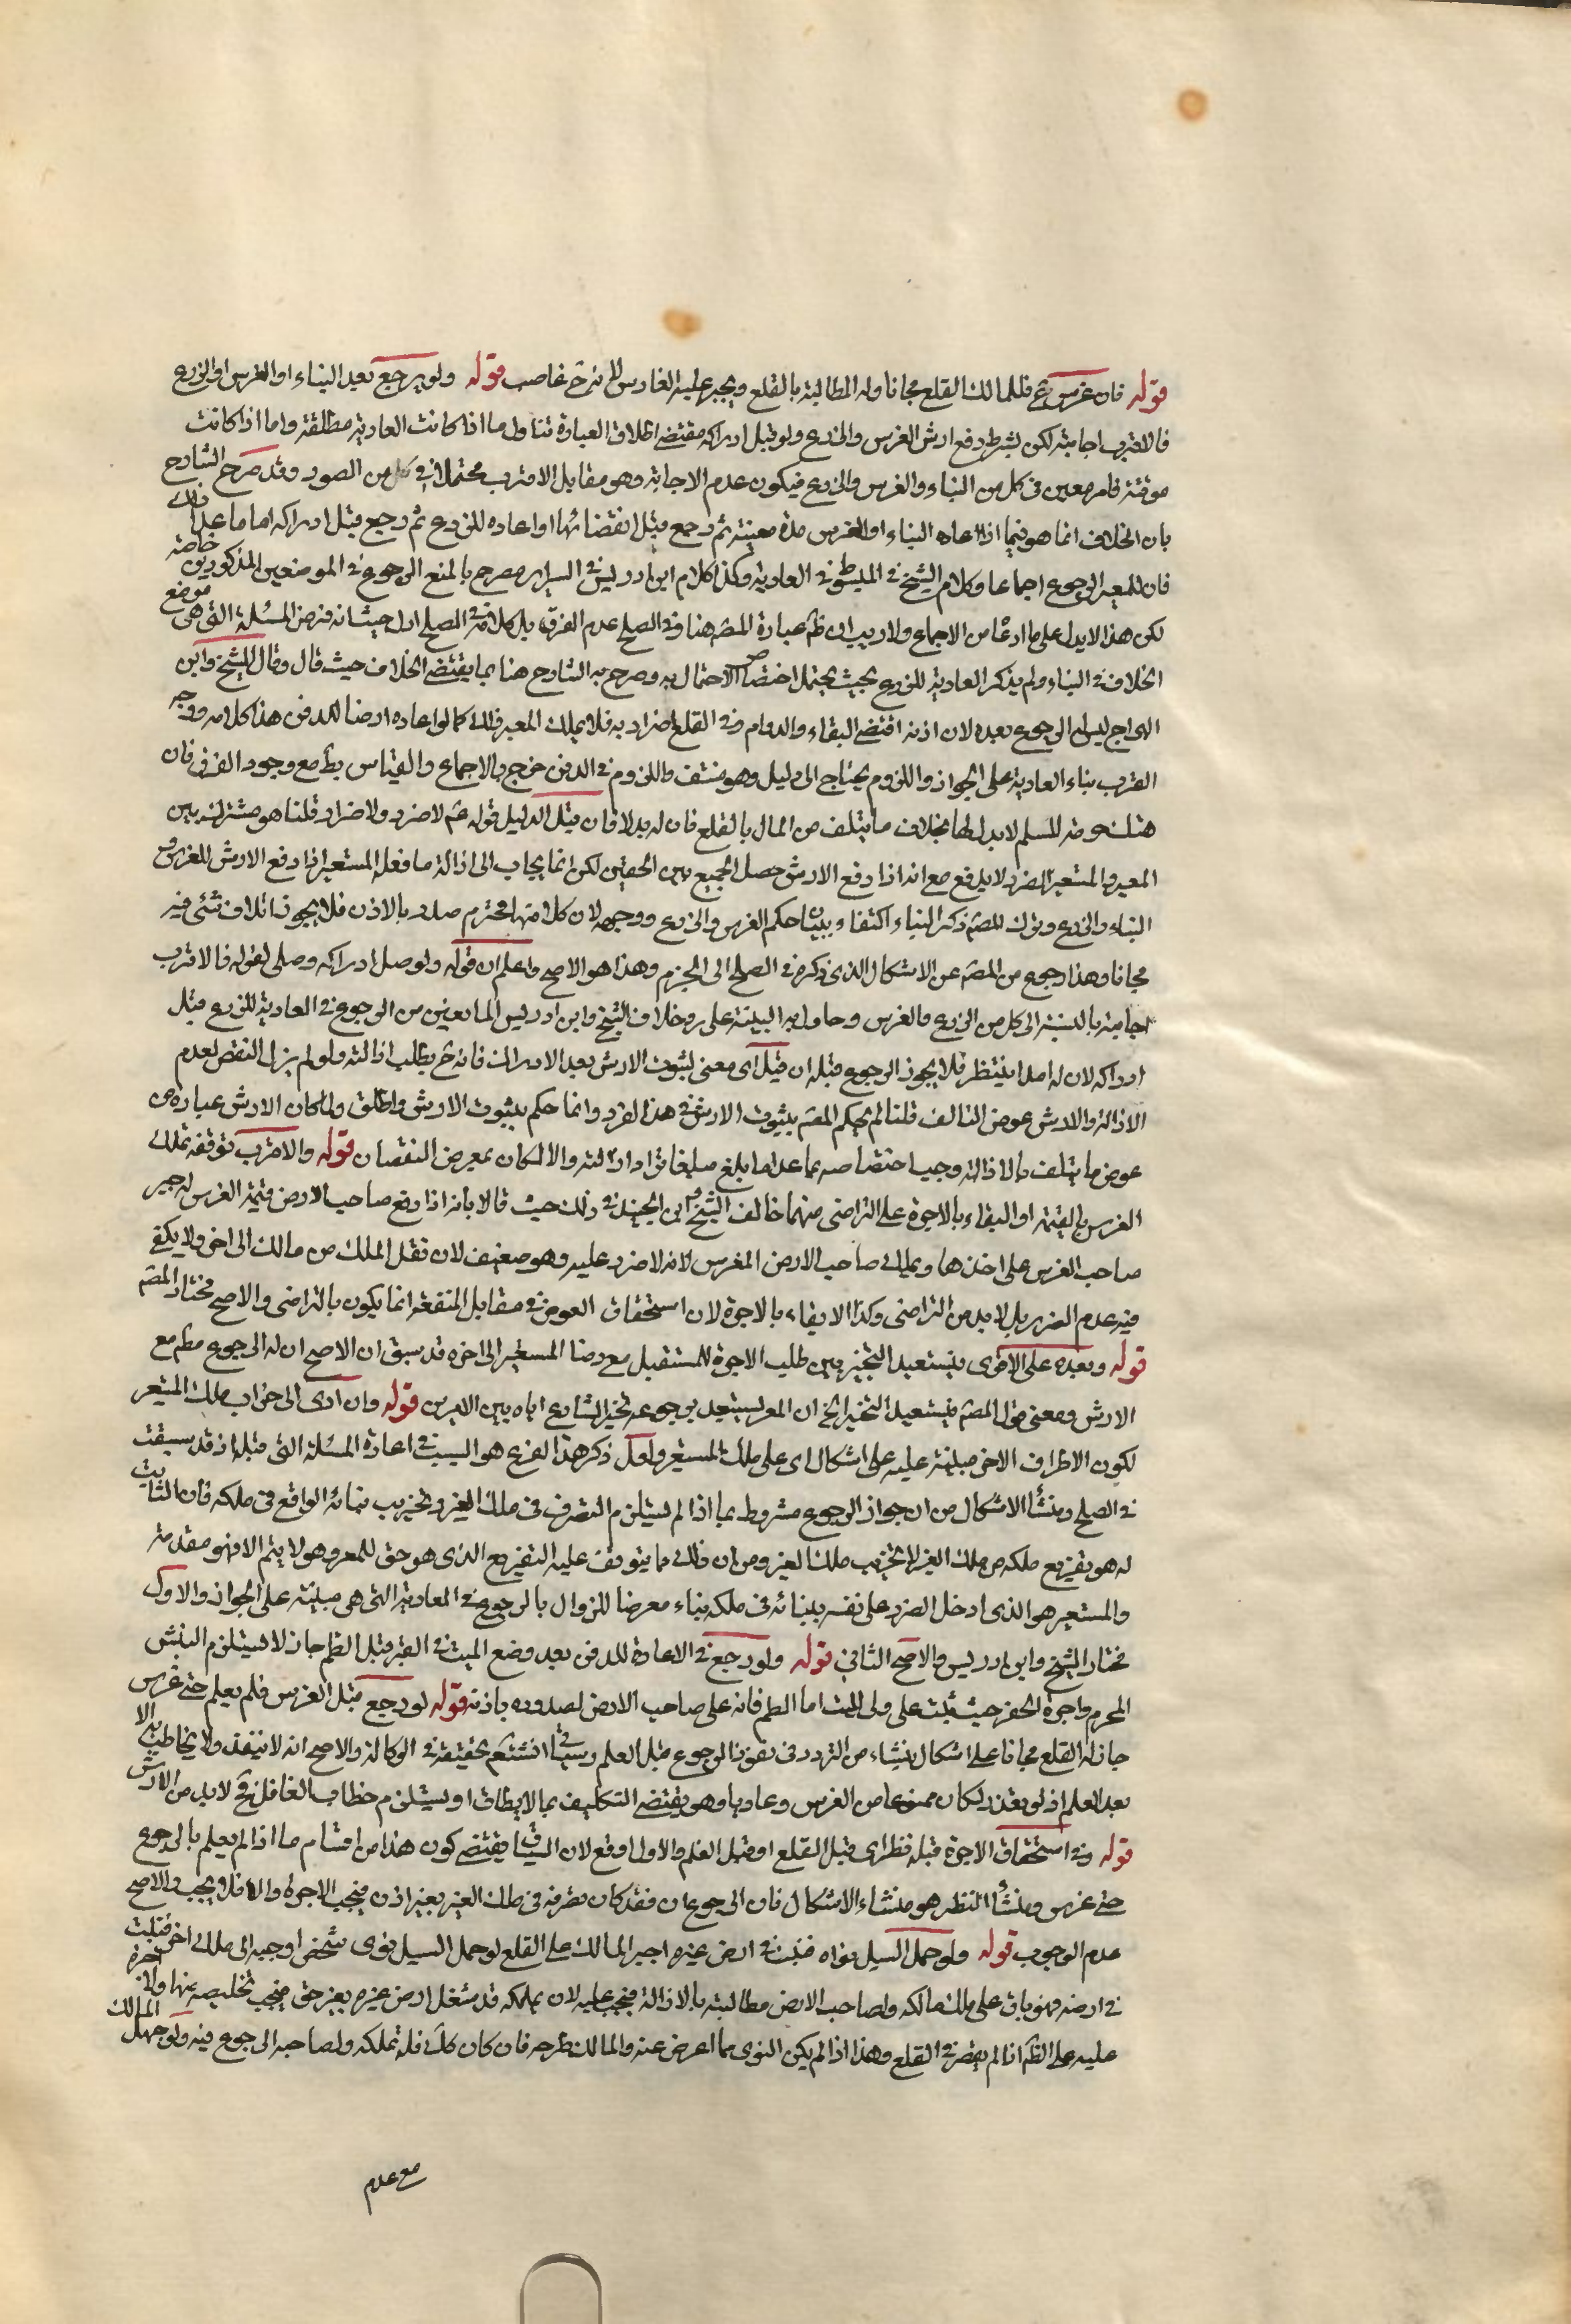 قوله فان غرس ح فللمالك القلع مجانا وله المطالبة بالقلع ويجبر عليه الغارس لانه ح غاصب قوله ولو رجع بعد البناء او الغرس او الزرع
فالاقرب اجابته لكن بشرط دفع ارش الغرس والزرع ولو قبل ادراكه مقتضى اطلاق العبارة تناول ما اذا كانت العارية مطلقة واما اذا كانت
موقتة فامر معين في كل من البناء والغرس والزرع فيكون عدم الاجابة وهو مقابل الاقرب محتملا في كل من الصور وقد صرح الشارح
بان الخلاف انما هو فيما اذا اعاده البناء او الغرس مدة معينة ثم رجع قبل انقضائها او اعاده للزرع ثم رجع قبل ادراكه اما ما عدا ذلك
فان للمعير الرجوع اجماعا وكلام الشيخ في المبسوط في العارية وكذا كلام ابن ادريس في السراير مصرح بالمنع الرجوع في الموضعين المذكورين خاصة
لكن هذا لا يدل على ما ادعاه من الاجماع ولا ريب ان ظ عبارة المصّ هنا وفي الصلح عدم الفرق بل كلامه في الصلح ادل حيث انه فرض المسئلة التي هي موضع
الخلاف في البناء ولم يذكر العارية للزرع بحيث يحتمل اختصاص الاحتمال به وصرح به الشارح هنا بما يقتضى الخلاف حيث قال وقال الشيخ وابن
البراج ليس له الرجوع بعده لان اذنه اقتضى البقاء والدوام وفي القلع اضرار به فلا يملك المعير ذلك كما لو اعاده ارضا للدفن هذا كلامه ووجه
القرب بناء العارية على الجواز واللزوم يحتاج الى دليل وهو منتف واللزوم في الدفن خرج بالاجماع والقياس بط مع وجود الفرق فان
هتك حرمة المسلم لا بدل لها بخلاف ما يتلف من المال بالقلع فان له بدلا فان قيل الدليل قوله عم لا ضرر ولا ضرار قلنا هو مشترك بين
المعير والمستعير الضرر لا يدفع مع انه اذا دفع الارش حصل الجمع بين الحقين لكن انما يجاب الى ازالة ما فعله المستعير اذا دفع الارش للغرس و
البناء والزرع وترك المصّ ذكر البناء اكتفاء ببيان حكم الغرس والزرع ووجهه لان كلا منها محترم صدر بالاذن فلا يجوز اتلاف شئ منه
مجانا وهذا رجوع من المصّ عن الاشكال الذي ذكره في الصلح الى الجزم وهذا هو الاصح واعلم ان قوله ولو قبل ادراكه وصلى لقوله فالاقرب
اجابته بالنسبة الى كل من الزرع والغرس وحاول به التنبيه على رد خلاف الشيخ وابن ادريس المانعين من الرجوع في العارية للزرع قبل
ادراكه لان له امدا ينتظر فلا يجوز الرجوع قبله ان قيل اى معنى لثبوت الارش بعد الادراك فانه ح يطلب ازالته ولو لم يزل النقص لعدم
الازالة والارش عوض التالف قلنا لم يحكم المصّ بثبوت الارش في هذا الفرد وانما حكم بثبوت الارش واطلق ولما كان الارش عبارة عن
عوض ما يتلف بالازالة وجب اختصاصه بما عدا ما بلغ مبلغا يراد ازالته والا لكان بمعرض النقصان قوله والاقرب توقف تملك
الغرس بالقيمة او البقاء بالاجرة على التراضى منهما خالف الشيخ وابن الجنيد في ذلك حيث قالا بانه اذا دفع صاحب الارض قيمة الغرس له جبر
صاحب الغرس على اخذها ويملك صاحب الارض المغرس لانه لا ضرر عليه وهو ضعيف لان نقل الملك من مالك الى اخر ولا يكفى
فيه عدم الضرر بل لا بد من التراضى وكذا الابقاء بالاجرة لان استحقاق العوض في مقابل المنفعة انما يكون بالتراضى والاصح مختار المصّ
قوله وبعده على الاقوى فيستعيد التخيير بين طلب الاجرة للمستقبل مع رضا المستعير الى اخره قد سبق ان الاصح ان له الرجوع مط مع
الارش ومعنى قول المصّ فيستعيد التخيير الخ ان المعير يستعيد برجوعه تخيير الشارع اياه بين الامرين قوله وان ادى الى خراب ملك المستعير
لكون الاطراف الاخر مبنية عليه على اشكال اى على ملك المستعير ولعل ذكر هذا الفرع هو السبب في اعادة المسئلة التي قبلها اذ قد سبقت
في الصلح ومنشأ الاشكال من ان جواز الرجوع مشروط بما اذا لم يستلزم التصرف في ملك الغير وتخريب بنائه الواقع في ملكه فان الثابت
له هو تفريع ملكه من ملك الغير لا تخريب ملك الغير ومن ان ذلك مما يتوقف عليه التفريع الذي هو حق للمعير وهو لا يتم الا فهو مقدمته
والمستعير هو الذي ادخل الضرر على نفسه ببنائه في ملكه بناء معرضا للزوال بالرجوع في العارية التي هي مبنية على الجواز والاول
مختار الشيخ وابن ادريس والاصح الثاني قوله ولو رجع في الاعارة للدفن بعد وضع الميت في القبر قبل الطم جاز لا يستلزم النبش
المحرم واجرة الحفر حيث يثبت على ولى الميت اما الطم فانه على صاحب الارض لصدوره باذنه قوله لو رجع قبل الغرس فلم يعلم حتى غرس
جاز له القلع مجانا على اشكال ينشاء من التردد في نفوذ الرجوع قبل العلم وسياتي انشتعم تحقيقه في الوكالة والاصح انه لا ينفذ ولا يخاطب به الا
بعد العلم اذ لو نفذ لكان ممنوعا من الغرس وعاديا وهو يقتضى التكليف بما لا يطاق او يستلزم خطاب الغافل فح لا بد من الارش
قوله وفي استحقاق الاجرة قبله نظر اى قبل القلع او قبل العلم والاول اوقع لان السياق يقتضى كون هذا من اقسام ما اذا لم يعلم بالرجوع
حتى غرس ومنشأ النظر هو منشاء الاشكال فان الرجوع ان نفذ كان تصرفه في ملك الغير بغير اذن فيجب الاجرة والا فلا يجب والاصح
عدم الوجوب قوله ولو حمل السيل نواه فنبت في ارض غيره اجبر المالك على القلع لو حمل السيل نوى شخص او حبه الى ملك اخر فنبت
في ارضه فهو باق على ملك مالكه ولصاحب الارض مطالبته بالازالة فيجب عليه لان ملكه قد شغل ارض غيره بغير حق فيجب تخليصه منها ولا اجرة
عليه على الظ اذا لم يقصر في القلع وهذا اذا لم يكن النوى مما اعرض عنه والمالك طرحه فان كان كك فله تملكه ولصاحبه الرجوع فيه ولو جهل المالك
مع عدم